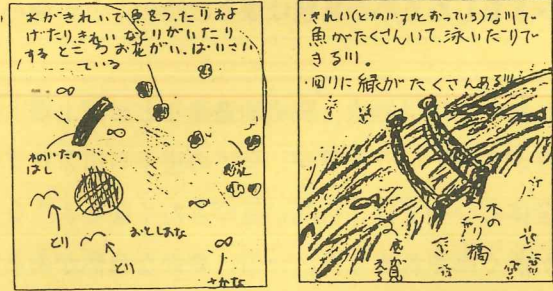 水がきれいで魚をつったりおよ
げたりきれいなとりがいたり
するところお花がいっぱいさい
ている
木のいたの
はし
おとしあな
とり
とり
さかな
・きれい(とうめいすかとおっている)な川で
魚がたくさんいて、泳いだりで
きる川。
・回りに緑がたくさんある川
木の
つり橋